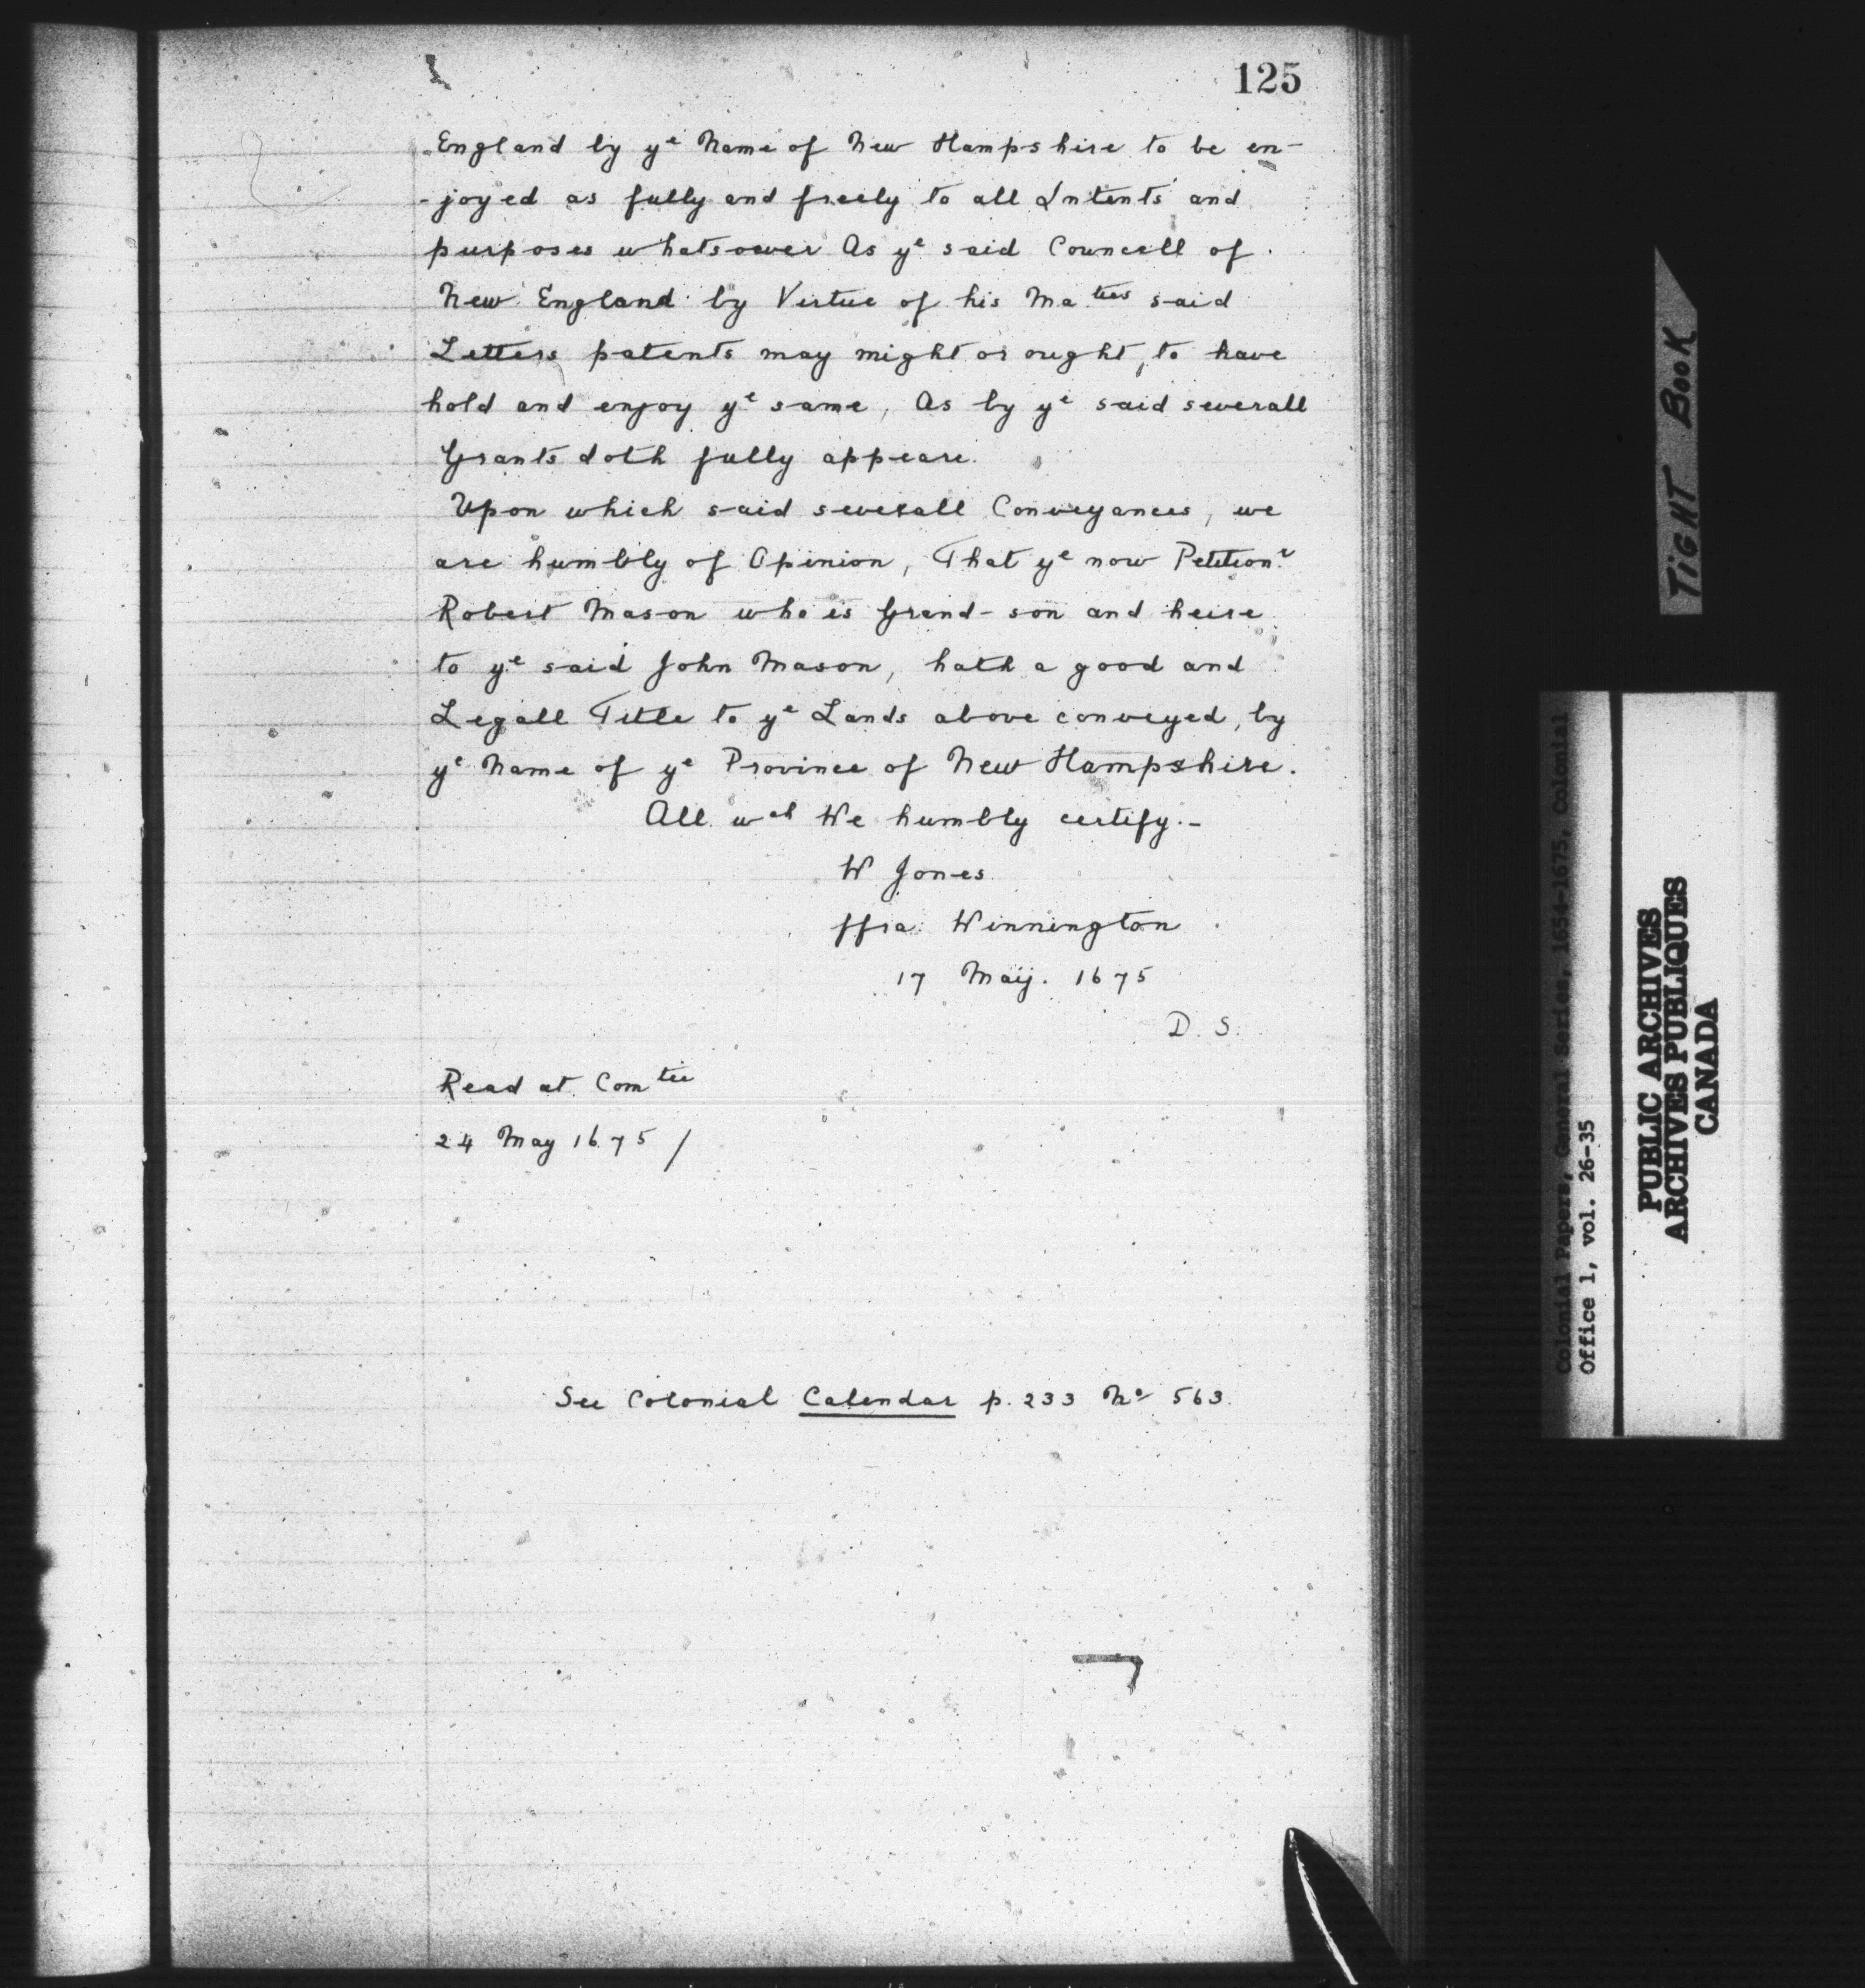 125
England by yᵉ Name of New Hampshire to be en-
-joyed as fully and freely to all Intents and
purposes whatsoever As yᵉ said Councell of
New England by Vertue of his Maᵗⁱᵉˢ said
Letters patents may might or ought, to have
hold and enjoy yᵉ same, As by yᵉ said severall
Grants doth fully appeare.
Upon which said severall Conveyances, we
are humbly of Opinion, That yᵉ now Petitionʳ
Robert Mason who is Grand-son and heire
to yᵉ said John Mason, hath a good and
Legall Title to yᵉ Lands above conveyed, by
yᵉ Name of yᵉ Province of New Hampshire.
All wᶜʰ We humbly certify.-
W Jones
ffra: Winnington
17 Maij. 1675
D. S.
Read at Comᵗᵉᵉ
24 May 1675 /
See Colonial Calendar p. 233 Nº 563.
TIGHT BOOK
Colonial Papers, General Series, 1654-1675, Colonial
Office 1, vol. 26-35
PUBLIC ARCHIVES
ARCHIVES PUBLIQUES
CANADA